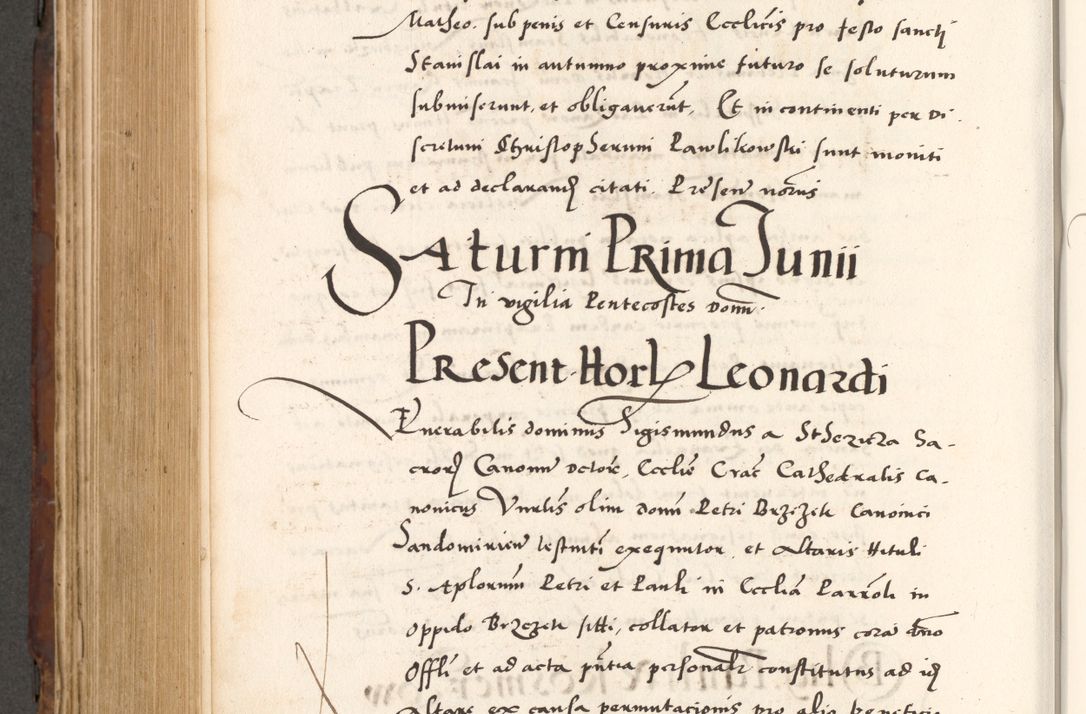 Matheo. sub penis et Censuris Ecclicis pro festo sancti
Stanislai in autumno proxime futuro se soluturum
submiserunt, et obligaverut, Et in continenti per Di-
scretum Christopherum Pawlikowski sunt moniti
et ad declarand citati. Presen notrus
Saturni Prima Junii
In vigilia Pentecostes Domi.
Present Horl Leonardi
Venerabilis dominus Sigismundus a Stezicza Sa-
cror Canonum Doctor, Ecclie Crac Cathedralis Ca-
nonicus Unrlis olim domi Petri Brzezek Canonici
Sandomirien testmti exequutor, et Altaris tituli
S. Aplorum Petri et Pauli in Ecclia Parroli in
Oppido Brzezek siti, collator et patronus cora dno
Offli et ad acta pntia personalr constitutus ad id
Altare ex causa permutacionis pro alio beneficio